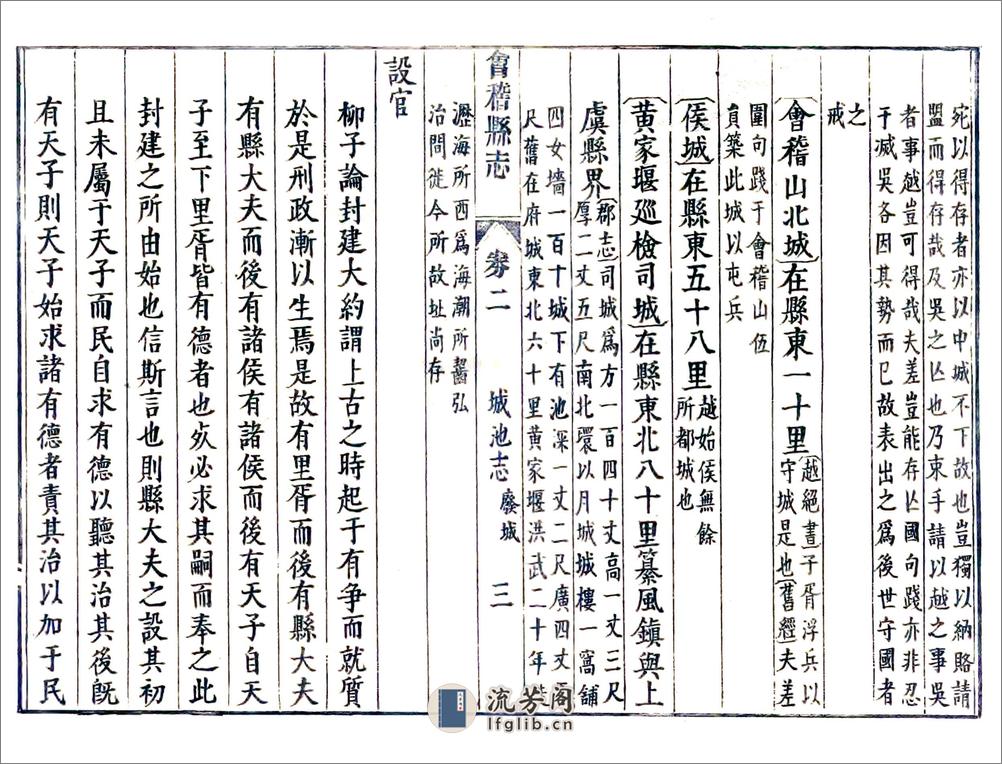 宛以得存者亦以中城不下故也豈獨以納賂請
盟而得存哉及吳之亾也乃束手請以越之事吳
者事越豈可得哉夫差豈能存亾國句踐亦非忍
于滅吳各因其勢而已故表出之爲後世守國者
之
戒
會稽山北城在縣東一十里越絕書子胥浮兵以
守城是也舊經夫差
圍句踐于會稽山伍
員築此城以屯兵
侯城在縣東五十八里越始侯無餘
所都城也
黃家堰巡檢司城在縣東北八十里纂風鎮與上
虞縣界郡志司城爲方一百四十丈高一丈三尺
厚二丈五尺南北環以月城城樓一窩舖
四女墻一百十城下有池深一丈二尺廣四丈
尺舊在府城東北六十里黃家堰洪武二十年
會稽縣志 卷二 城池志 廢城 三
瀝海所西爲海潮所齧弘
治間徙今所故址尚存
設官
柳子論封建大約謂上古之時起于有爭而就質
於是刑政漸以生焉是故有里胥而後有縣大夫
有縣大夫而後有諸侯有諸侯而後有天子自天
子至下里胥皆有德者也歿必求其嗣而奉之此
封建之所由始也信斯言也則縣大夫之設其初
且未屬于天子而民自求有德以聽其治其後旣
有天子則天子始求諸有德者責其治以加于民
流芳阁
lfglib.cn